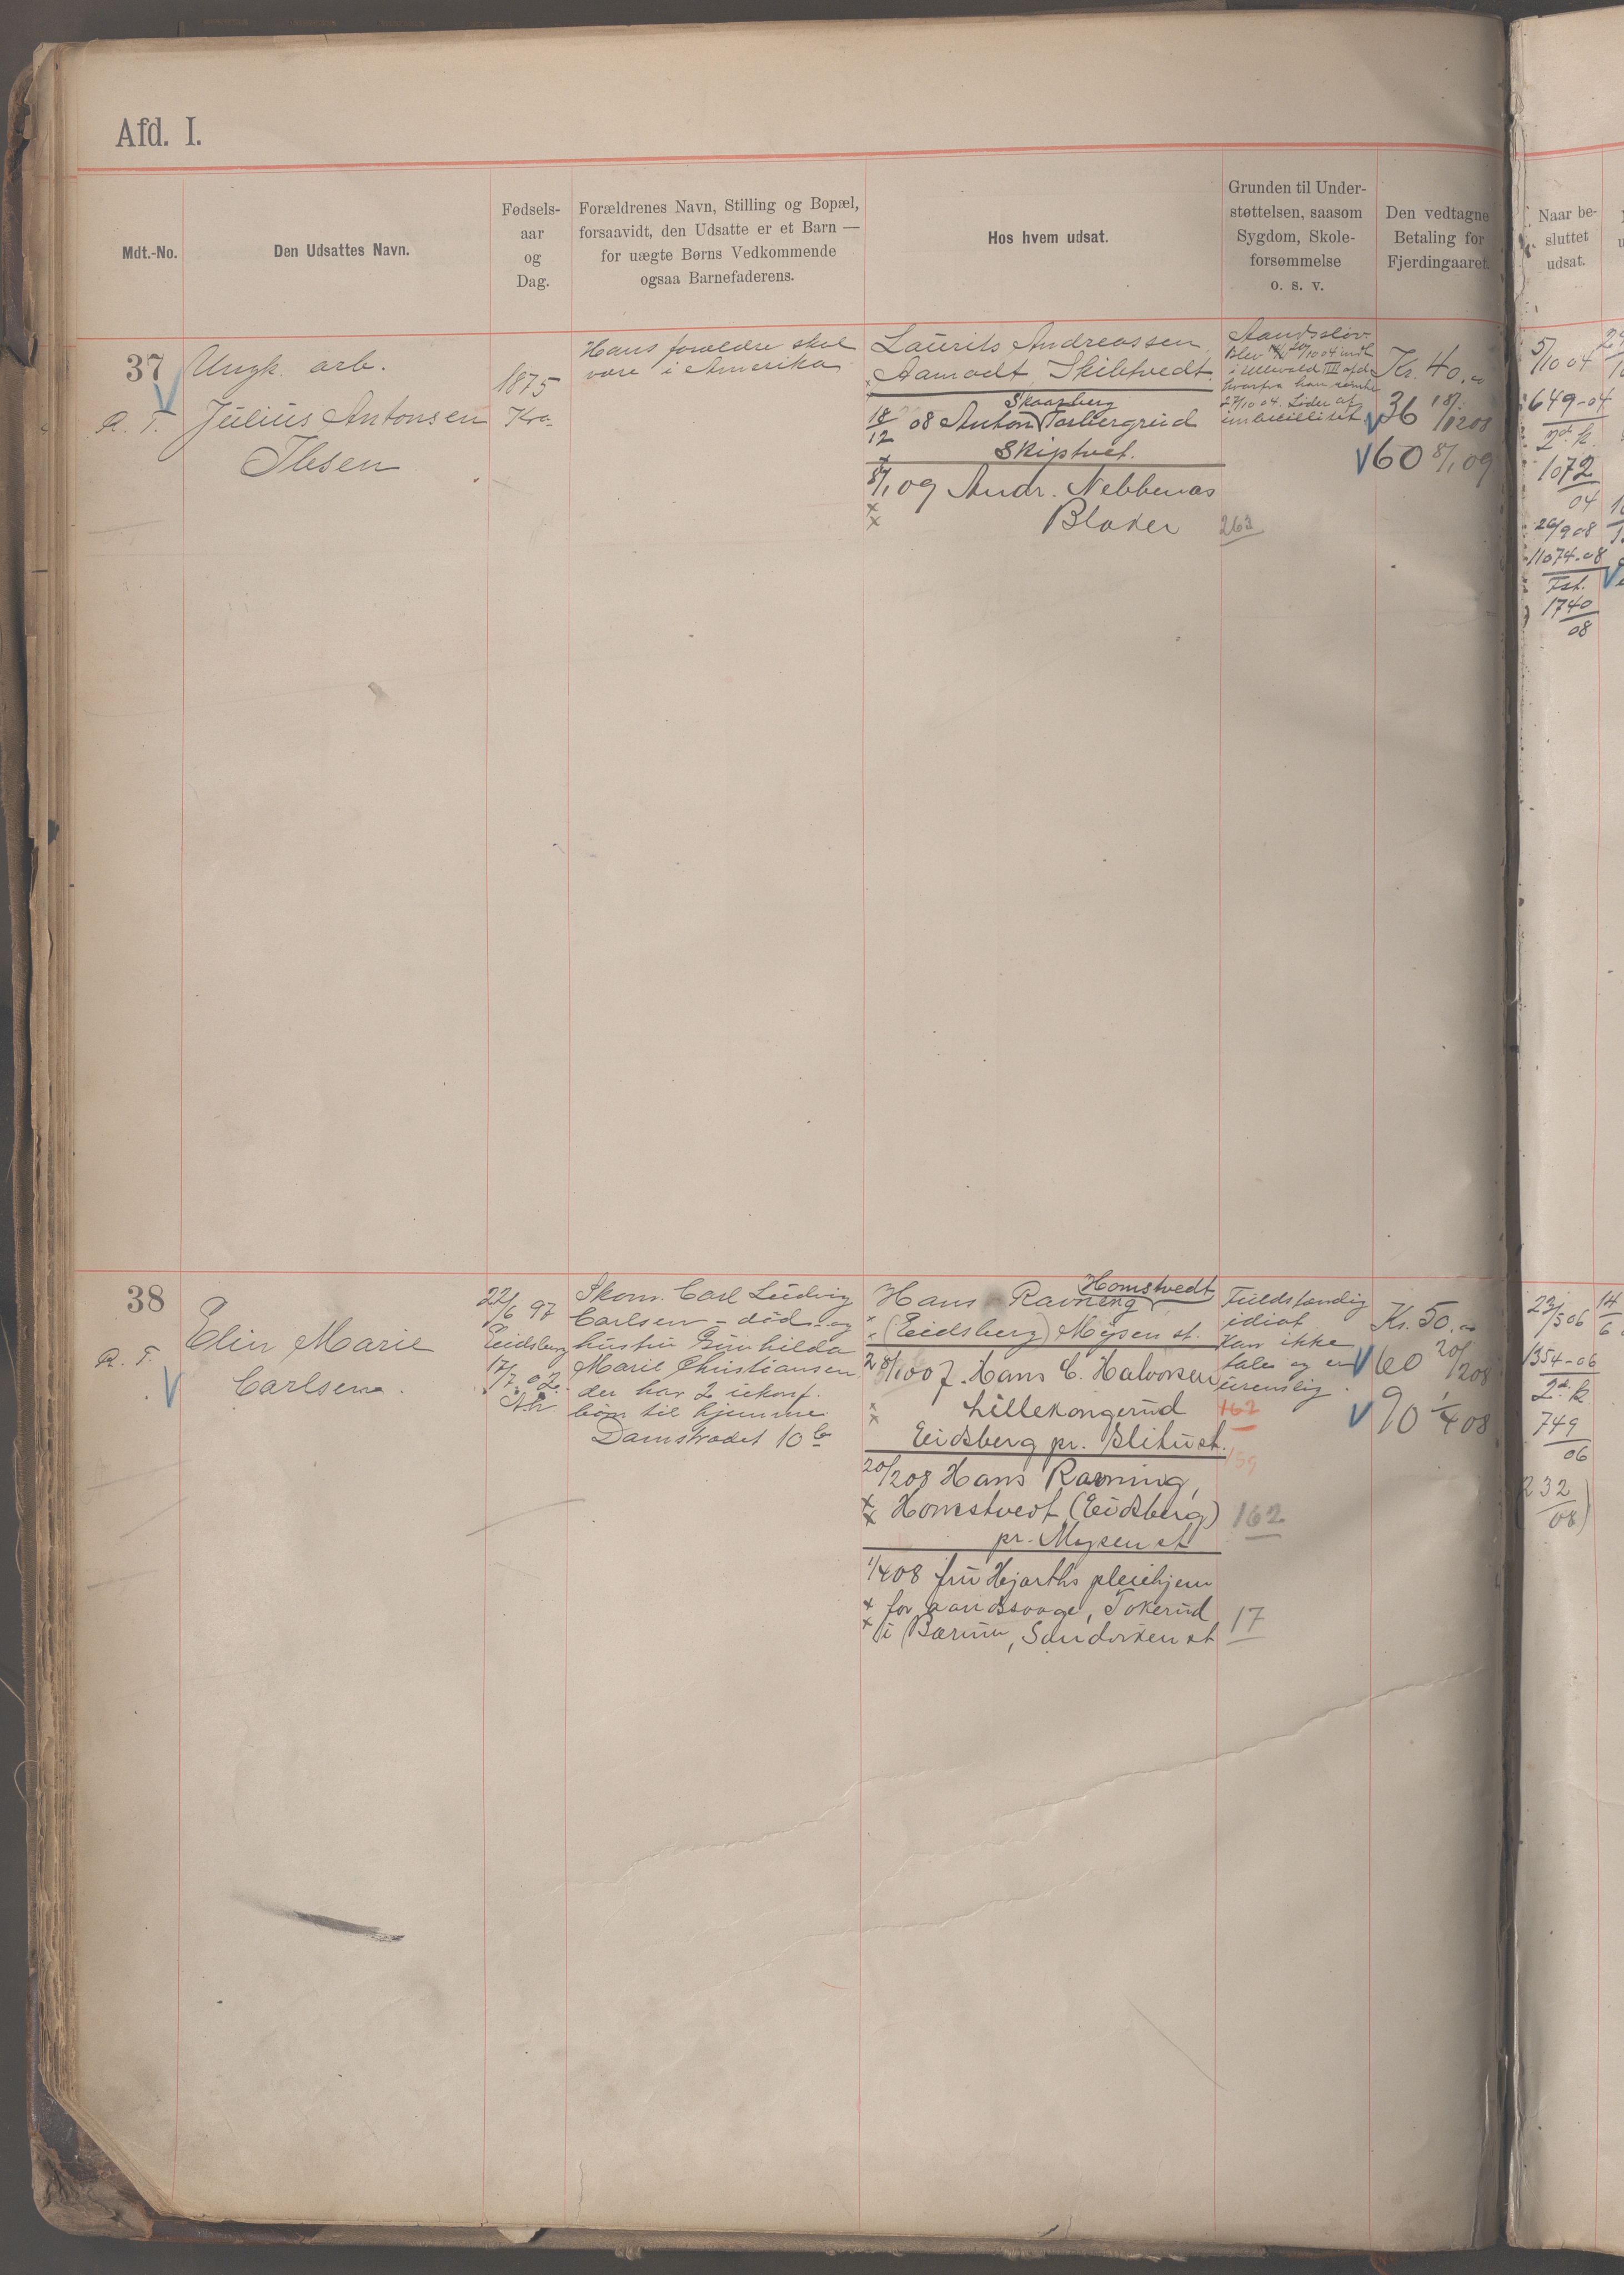 Afd. I.
Mdt.-No.
Den Udsattes Navn.
Fødsels-
aar
og
Dag.
Forældrenes Navn, Stilling og Bopæl,
forsaavidt, den Udsatte er et Barn —
for uægte Børns Vedkommende
ogsaa Barnefaderens.
Hos hvem udsat.
Grunden til Under-
støttelsen, saasom
Sygdom, Skole-
forsømmelse
o. s. v.
Den vedtagne
Betaling for
Fjerdingaaret.
Naar be-
sluttet
udsat.
37
Ungk. arb.
R. T. Julius Antonsen
Ibsen
1875
Kra.
Hans forældre skal
være i Amerika
Laurits Andreassen,
Aamodt, Skibtvedt.
Skaarberg
18/12 08 Anton Torbergrud
Skiptvet.
8/1 09 Andr. Nebbenæs
Blaker
263
Aandssløv.
i Ullevold III afd.
hvorfra han
27/10 04. Lider af
imbecillitet
Kr. 40.
36 18/12 08
60 8/1 09
5/10 04
649-04
2d. k.
1072
04
26/9 08
11074-08
Fst.
1740
08
38
R. T. Elin Marie
Carlsen.
22/6 97
Eidsberg
17/7. 02.
Skom. Carl Ludvig
Carlsen - död - og
hustru Gunhilda
Marie Christiansen
der har 2 ukonf.
börn til hjemme
Damstrædet 10 b
Homstvedt
Hans Ravneng,
(Eidsberg) Mysen st.
28/10 07. Hans C. Halvorsen
Lillekongerud
Eidsberg pr. Slitu st.
20/2 08 Hans Ravning,
Homstvedt (Eidsberg)
pr. Mysen st
1/4 08 fru Hejarths pleiehjem
for aandssvage, Tokerud
i Bærum, Sandviken st
Fuldstændig
idiot
Kan ikke
tale og er
urenslig.
162
159
162
17
Kr. 50.
60 20/2 08
90 1/4 08
23/5 06
14
6
1354-06
2d. k
749
06
232
08)